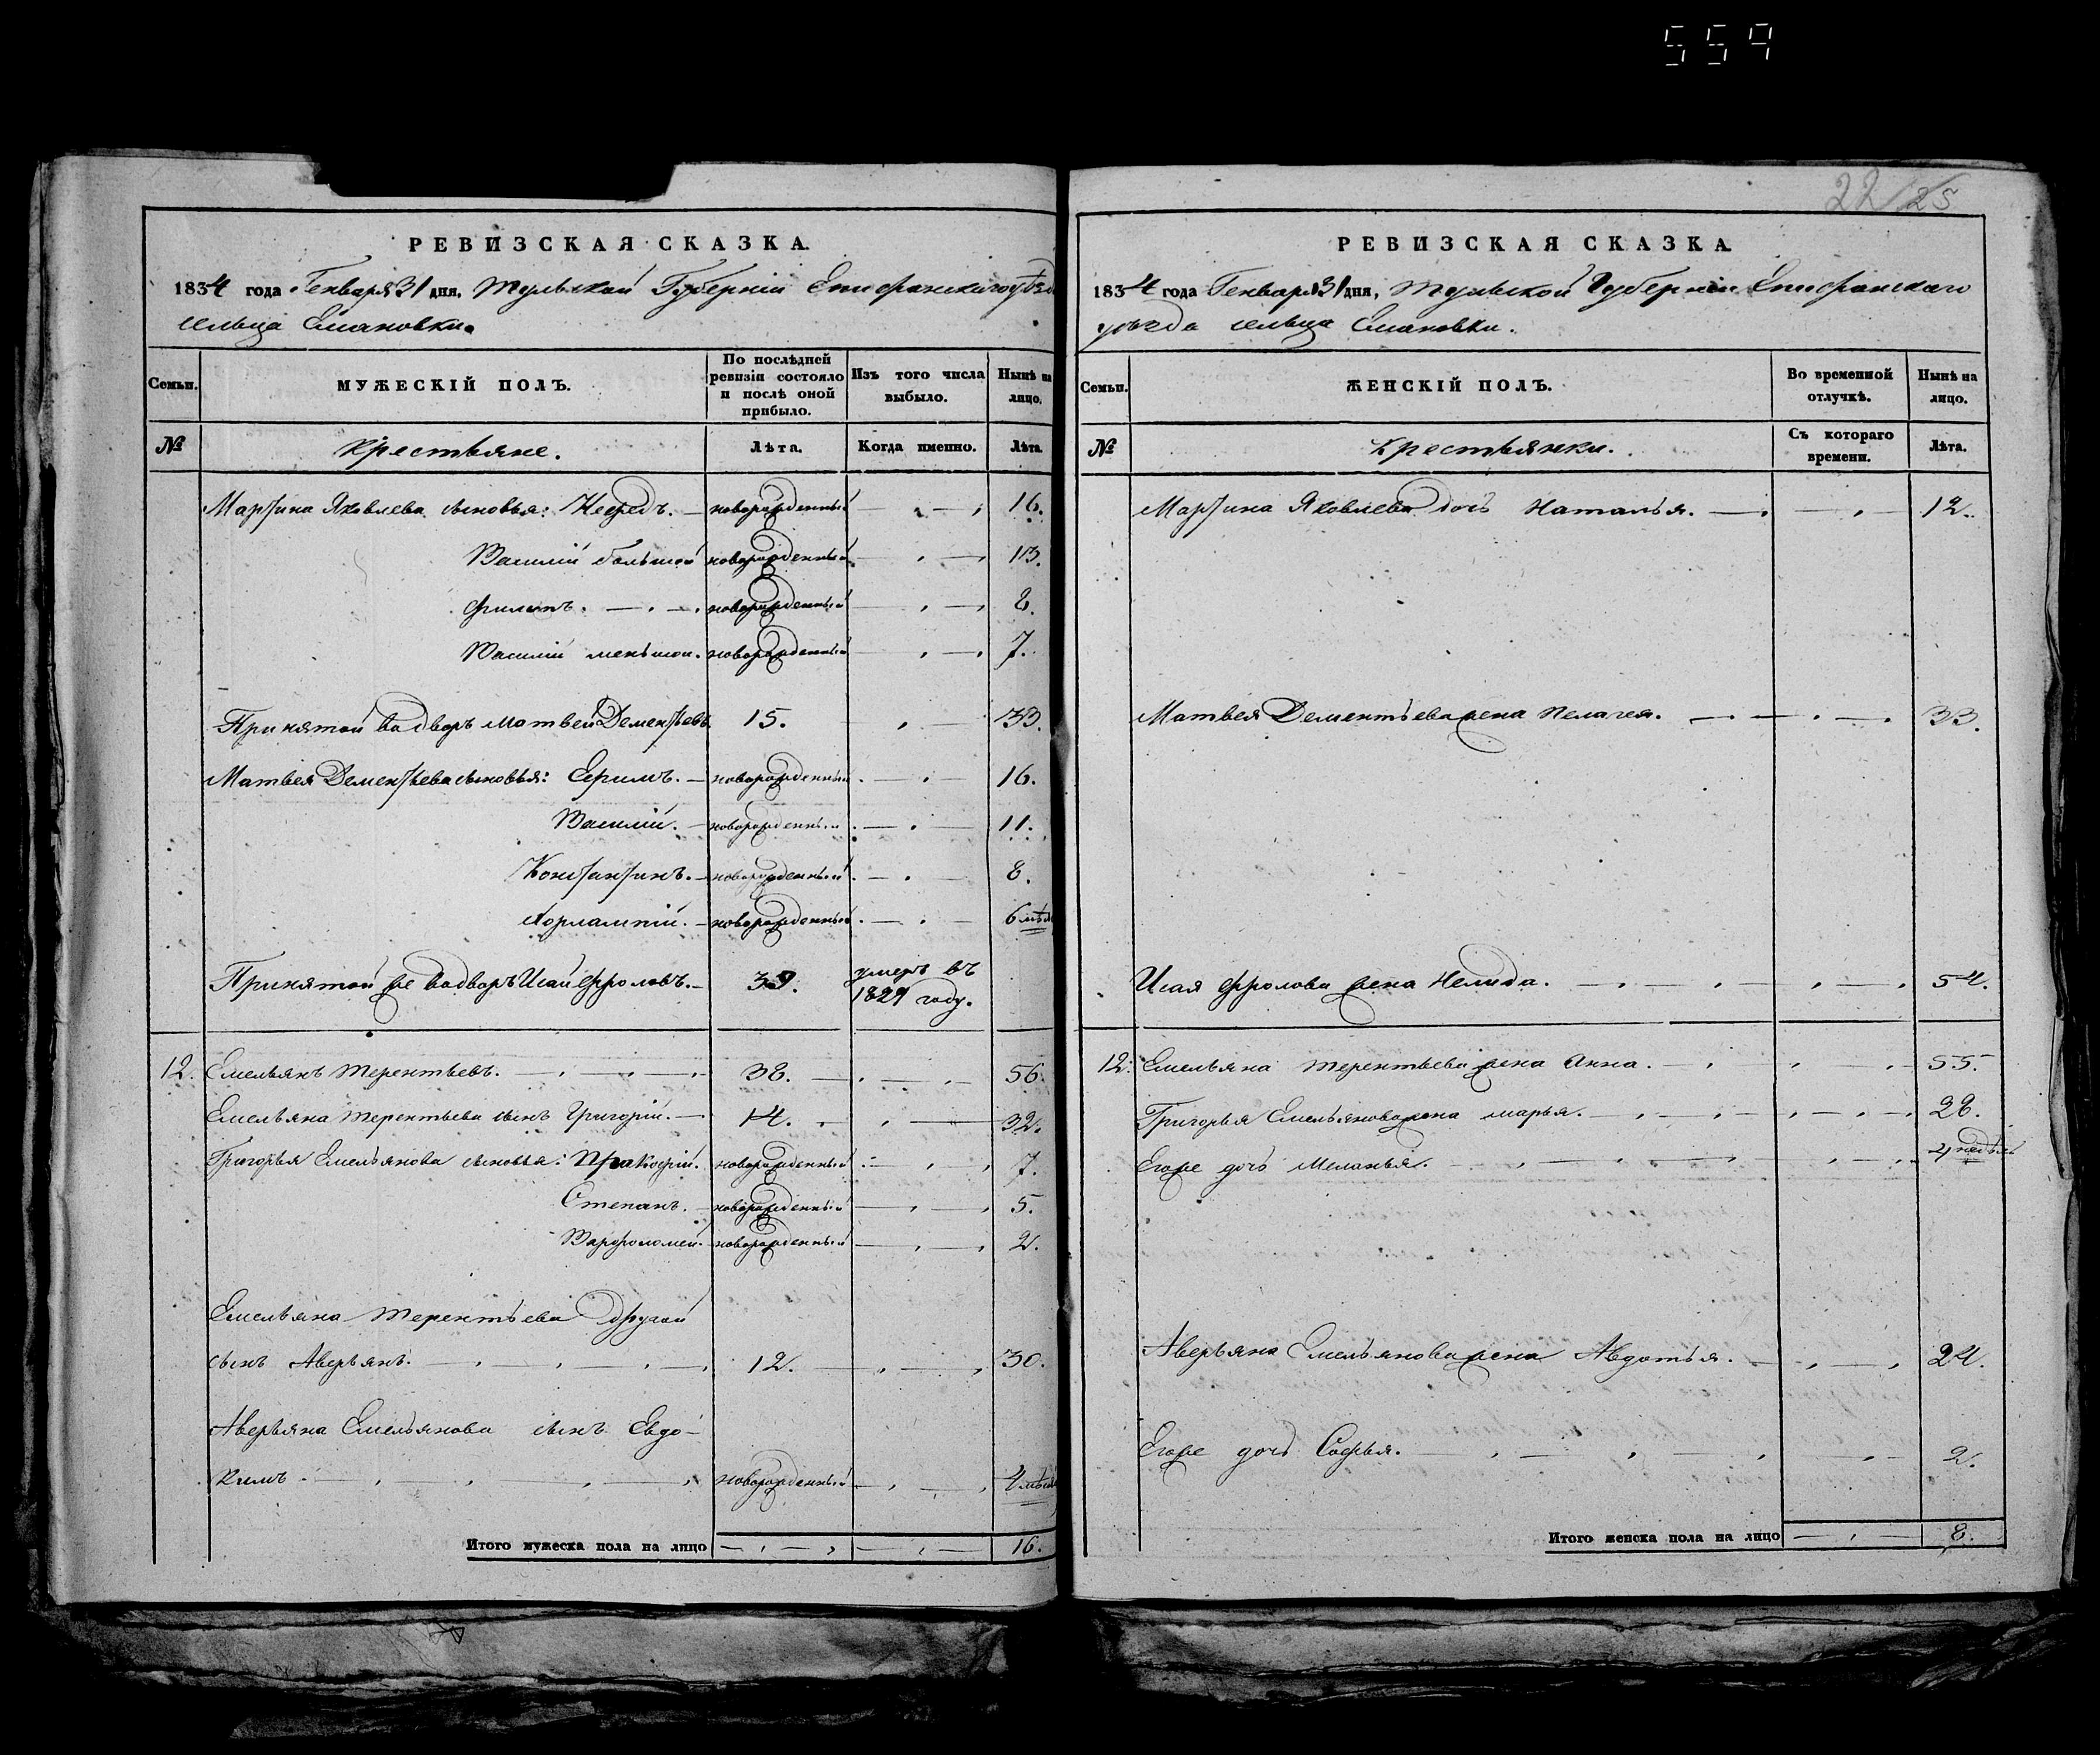 559
22/25
РЕВИЗСКАЯ СКАЗКА.
1834 года Генваря 31 дня, Тульской Губерніи Епифанскаго уѣзда
сельца Емановки.
Семьи. МУЖЕСКІЙ ПОЛЪ. По послѣдней ревизіи состояло и послѣ оной прибыло. Изъ того числа выбыло. Нынѣ на лицо.
№ Крестьяне. Лѣта. Когда именно. Лѣта.
Мартина Яковлева сыновья: Нефедъ. новорожденный 16.
Василій большой новорожденный 13.
Филипъ. новорожденный 8.
Василій меньшой. новорожденный 7.
Принятой во дворъ Матвей Дементьевъ 15. 33.
Матвея Дементьева сыновья: Ефимъ. новорожденный 16.
Василій. новорожденный 11.
Константинъ. новорожденный 8.
Харлампій. новорожденный 6 мѣся
Принятой же во дворъ Исай Фроловъ. 39. умеръ въ
1829 году.
12. Емельянъ Терентьевъ. 38. 56.
Емельяна Терентьева сынъ Григорій. 14. 32.
Григорья Емельянова сыновья: Пракофій. новорожденный 7.
Степанъ. новорожденный 5.
Варфоломей. новорожденный 2.
Емельяна Терентьева другой
сынъ Аверьянъ. 12. 30.
Аверьяна Емельянова сынъ Евдо-
кимъ. новорожденный 4 мѣся
Итого мужеска пола на лицо 16.
РЕВИЗСКАЯ СКАЗКА.
1834 года Генваря 31 дня, Тульской Губерніи Епифанскаго
уѣзда сельца Емановки.
Семьи. ЖЕНСКІЙ ПОЛЪ. Во временной отлучкѣ. Нынѣ на лицо.
№ Крестьянки. Съ котораго времени. Лѣта.
Мартина Яковлева дочь Наталья. 12.
Матвея Дементьева жена Пелагея. 33.
Исая Фролова жена Нелида. 54.
12. Емельяна Терентьева жена Анна. 55.
Григорья Емельянова жена Марья. 28.
Егоже дочь Меланья. 4 недѣли
Аверьяна Емельянова жена Авдотья. 24.
Егоже дочь Софья. 2.
Итого женска пола на лицо 8.